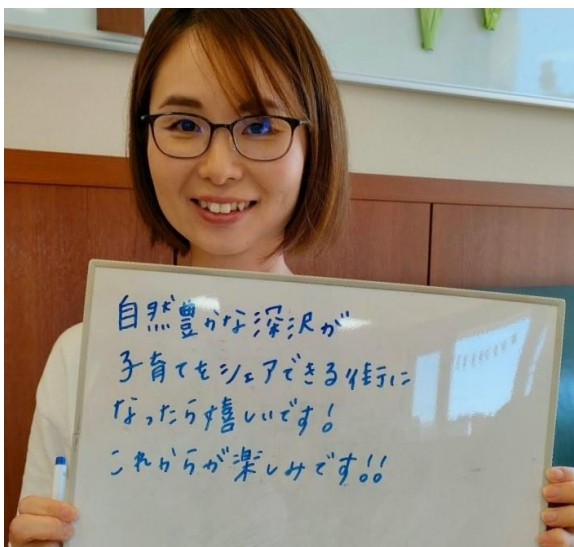 自然豊かな深沢が
子育てをシェアできる街に
なったら嬉しいです!
これからが楽しみです!!